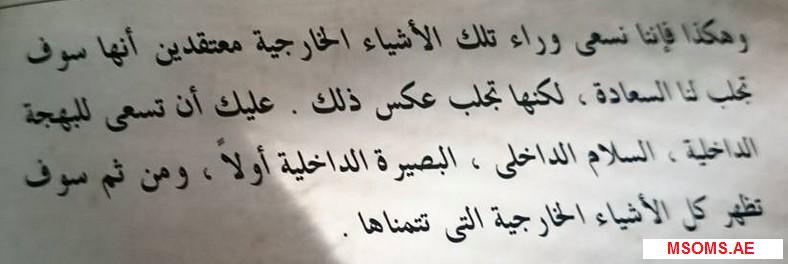 وهكذا فإننا نسعى وراء تلك الأشياء الخارجية معتقدين أنها سوف
تجلب لنا السعادة ، لكنها تجلب عكس ذلك . عليك أن تسعى للبهجة
الداخلية ، السلام الداخلى ، البصيرة الداخلية أولاً ، ومن ثم سوف
تظهر كل الأشياء الخارجية التى تتمناها .
MSOMS.AE